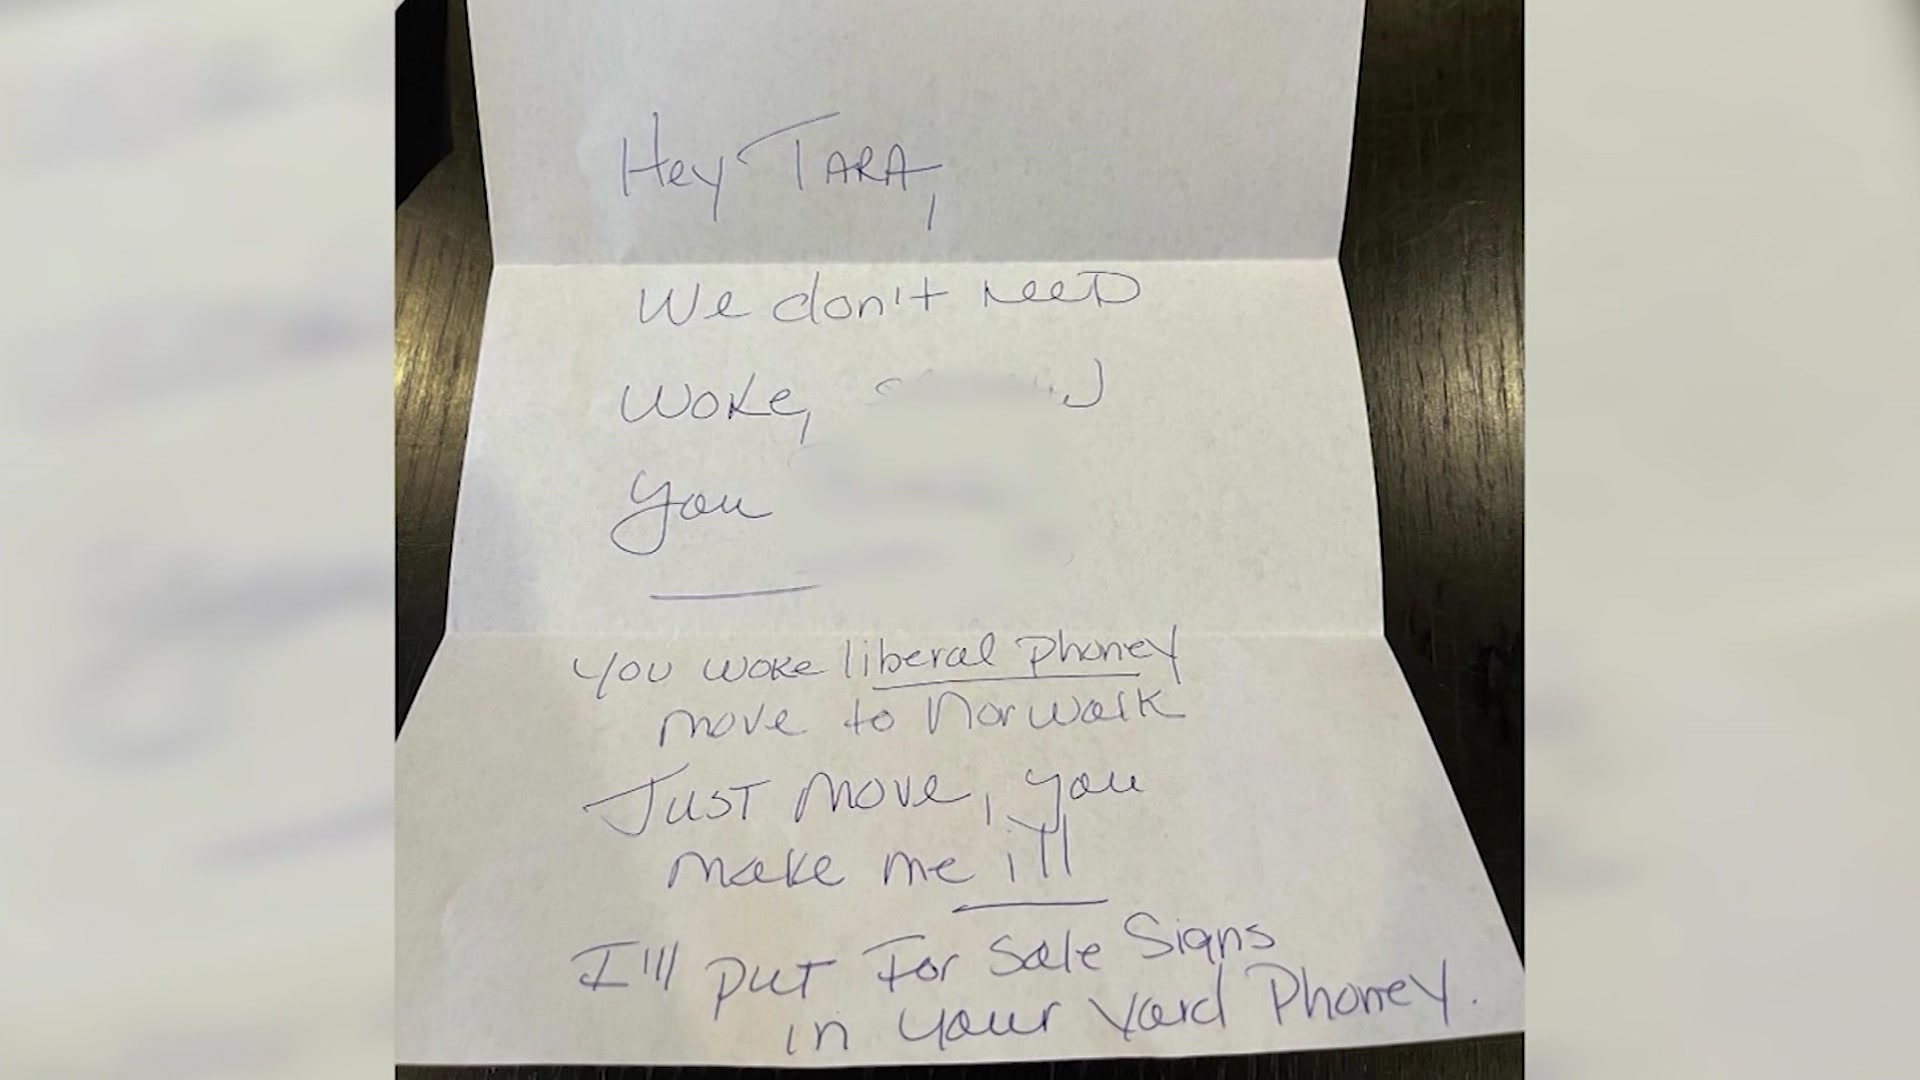 Hey TARA,
We don't NeeD
WOKe,
you
YOU WOKE liberal Phoney
move to Norwalk
JUST move, you
make me ill
I'll PUT For Sale Signs
in your Yard Phoney.